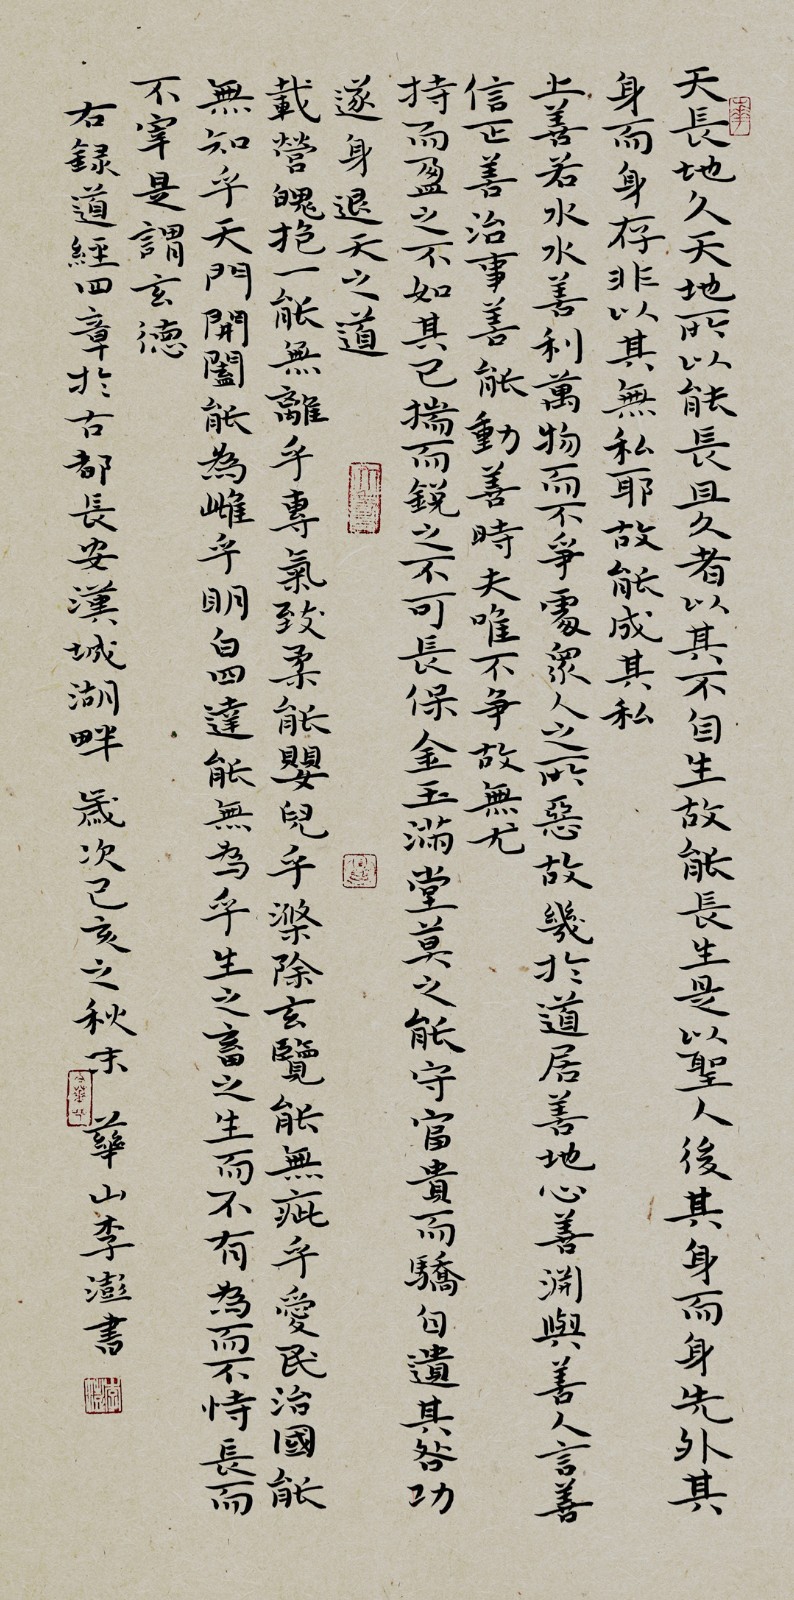 天長地久天地所以能長且久者以其不自生故能長生是以聖人後其身而身先外其
身而身存非以其無私耶故能成其私
上善若水水善利萬物而不爭處眾人之所惡故幾於道居善地心善淵與善人言善
信正善治事善能動善時夫唯不爭故無尤
持而盈之不如其已揣而銳之不可長保金玉滿堂莫之能守富貴而驕自遺其咎功
遂身退天之道
載營魄抱一能無離乎專氣致柔能嬰兒乎滌除玄覽能無疵乎愛民治國能
無知乎天門開闔能為雌乎明白四達能無為乎生之畜之生而不有為而不恃長而
不宰是謂玄德
右録道經四章於古都長安漢城湖畔 歲次己亥之秋末 華山李澎書